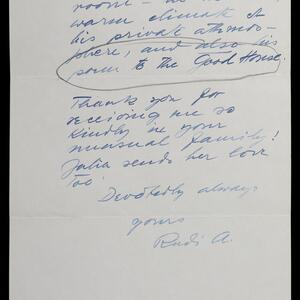 room -
warm climate &
his private atmos-
phere, and also his
poem to the Good House.
Thank you for
receiving me so
kindly in your
unusual family!
Julia sends her love
too.
Devotedly always
yours
Rudi A.